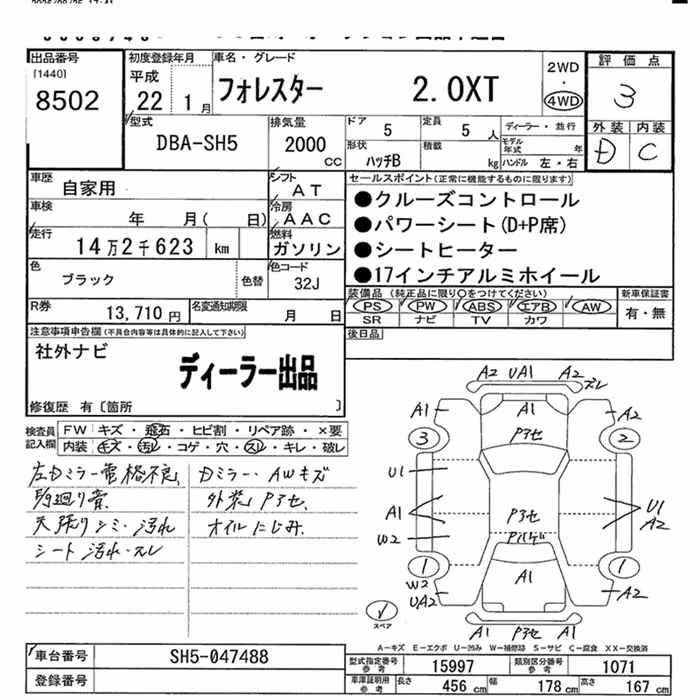 出品番号
[1440]
8502
初度登録年月
平成
22 1月
車名・グレード
フォレスター 2.0XT
2WD
・
4WD
評価点
3
外装 内装
D C
型式
DBA-SH5
排気量
2000
CC
ドア
5
定員
5 人
ディーラー・並行
形状
ハッチB
積載
kg
モデル年式 年
ハンドル 左・右
車歴
自家用
シフト
AT
車検
年 月( 日)
冷房
AAC
走行
14万2千623 km
燃料
ガソリン
色
ブラック
色替
色コード
32J
R券
13,710 円
名変通知期限
月 日
セールスポイント(正常に機能するものに限ります)
●クルーズコントロール
●パワーシート(D+P席)
●シートヒーター
●17インチアルミホイール
装備品 (純正品に限り○をつけてください)
PS PW ABS エアB AW
SR ナビ TV カワ
新車保証書
有・無
後日品
注意事項申告欄(不具合内容等は具体的に記入して下さい)
社外ナビ
ディーラー出品
修復歴 有〔箇所 〕
検査員記入欄
FW キズ・飛石・ヒビ割・リペア跡・×要
内装 キズ・汚レ・コゲ・穴・スレ・キレ・破レ
左Dミラー電格不良 Dミラー・AWキズ
足廻り音 外装Pアセ
天張りシミ・汚れ オイルにじみ
シート汚れ・スレ
A2 UA1 A2
ズレ
A1 A1 A2
3 Pアセ 2
U1
A1 Pアセ U1
A2
W2
1 1
W2
UA2 A1 A2
スペア
A1 Pアセ A1
A-キズ E-エクボ U-凹み W-補修跡 S-サビ C-腐食 XX-交換済
車台番号
SH5-047488
登録番号
型式指定番号
参考
15997
類別区分番号
参考
1071
車庫証明用
参考
長さ 456 cm 幅 178 cm 高さ 167 cm